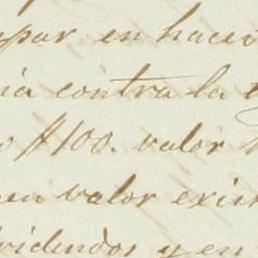 par en hacer
ia contra la
$100. valor
en valor exis
videndos y en